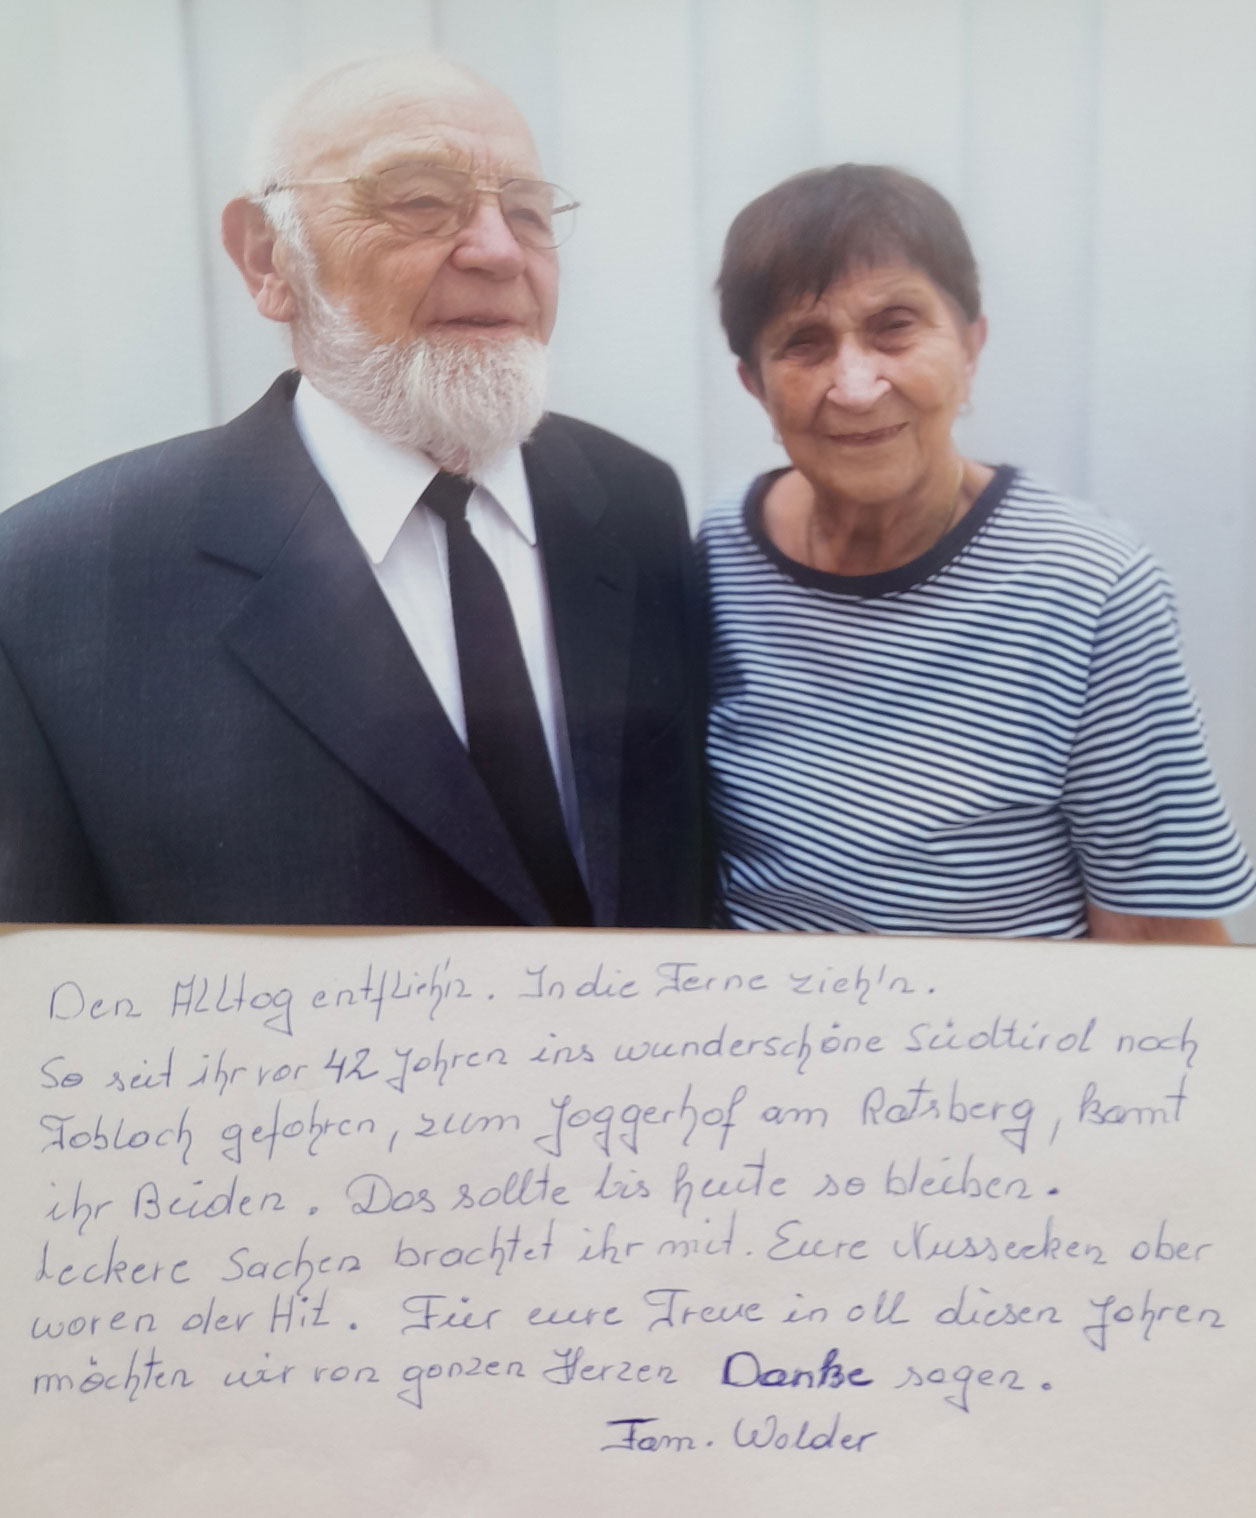 Den Alltag entflieh'n. In die Ferne zieh'n.
So seit ihr vor 42 Jahren ins wunderschöne Südtirol nach
Toblach gefahren, zum Joggerhof am Ratsberg, kamt
ihr Beiden. Das sollte bis heute so bleiben.
Leckere Sachen brachtet ihr mit. Eure Nussecken aber
waren der Hit. Für eure Treue in all diesen Jahren
möchten wir von ganzen Herzen Danke sagen.
Fam. Walder